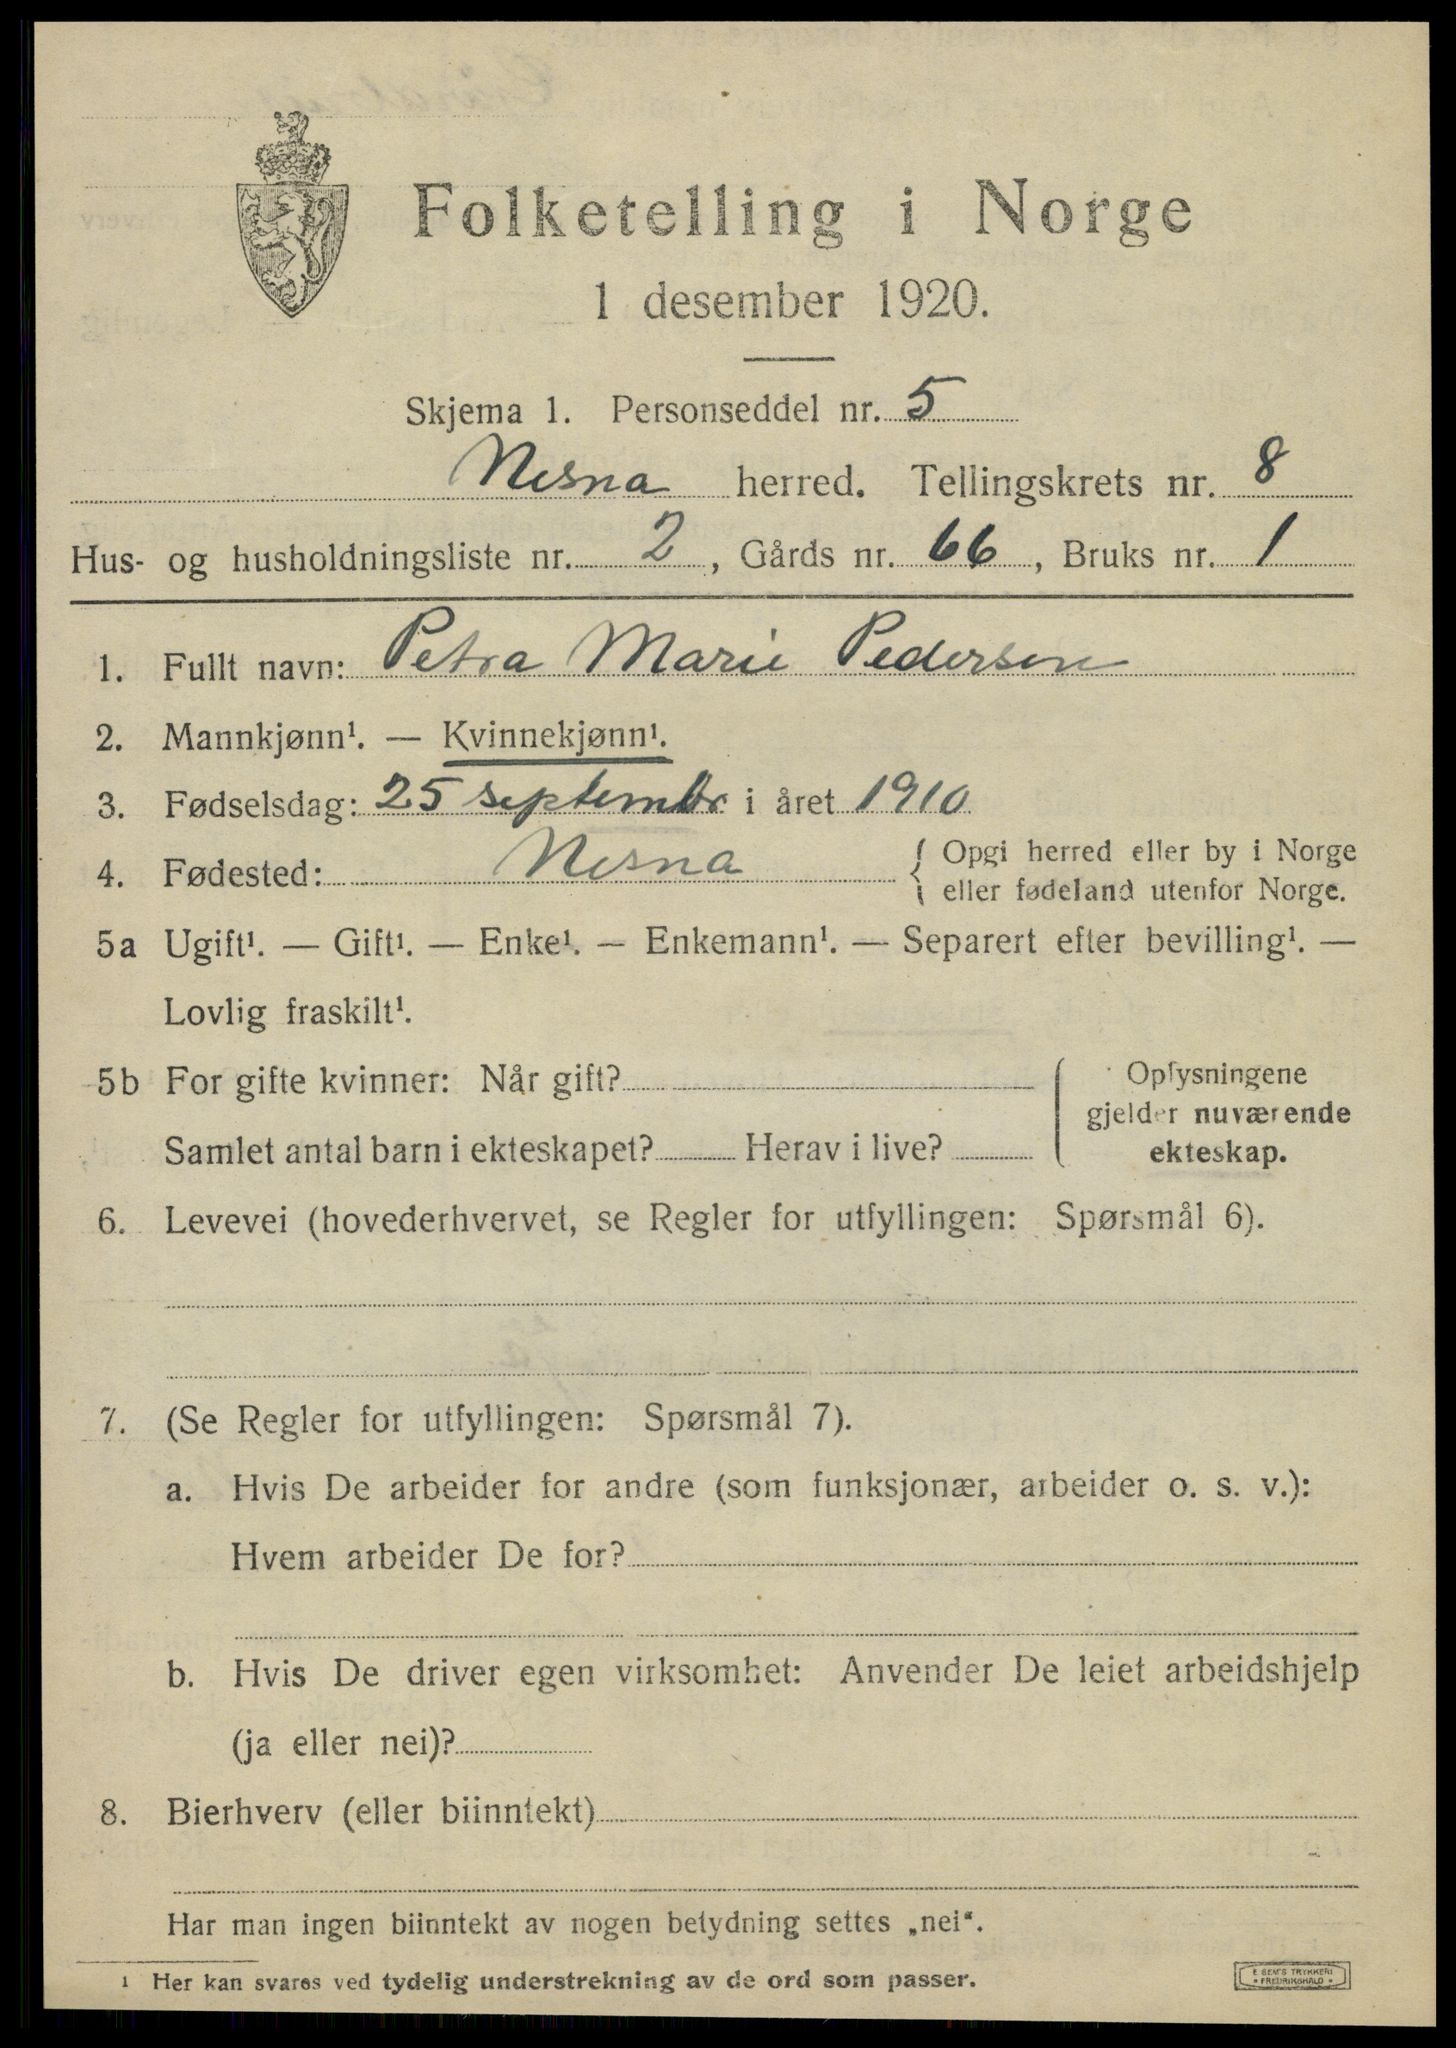 Folketelling i Norge
1 desember 1920.
Skjema 1. Personseddel nr. 5
Nesna herred. Tellingskrets nr. 8
Hus- og husholdningsliste nr. 2, Gårds nr. 66, Bruks nr. 1
1. Fullt navn: Petra Marie Pedersen
2. Mannkjønn¹. — Kvinnekjønn¹.
3. Fødselsdag: 25 septembr i året 1910
4. Fødested: Nesna { Opgi herred eller by i Norge
eller fødeland utenfor Norge.
5a Ugift¹. — Gift¹. — Enke¹. — Enkemann¹. — Separert efter bevilling¹. —
Lovlig fraskilt¹.
5b For gifte kvinner: Når gift?
Samlet antal barn i ekteskapet? Herav i live?
Oplysningene
gjelder nuværende
ekteskap.
6. Levevei (hovederhvervet, se Regler for utfyllingen: Spørsmål 6).
7. (Se Regler for utfyllingen: Spørsmål 7).
a. Hvis De arbeider for andre (som funksjonær, arbeider o. s. v.):
Hvem arbeider De for?
b. Hvis De driver egen virksomhet: Anvender De leiet arbeidshjelp
(ja eller nei)?
8. Bierhverv (eller biinntekt)
Har man ingen biinntekt av nogen betydning settes „nei“.
¹ Her kan svares ved tydelig understrekning av de ord som passer.
E SEM'S TRYKKERI
• FREDRIKSHALD •